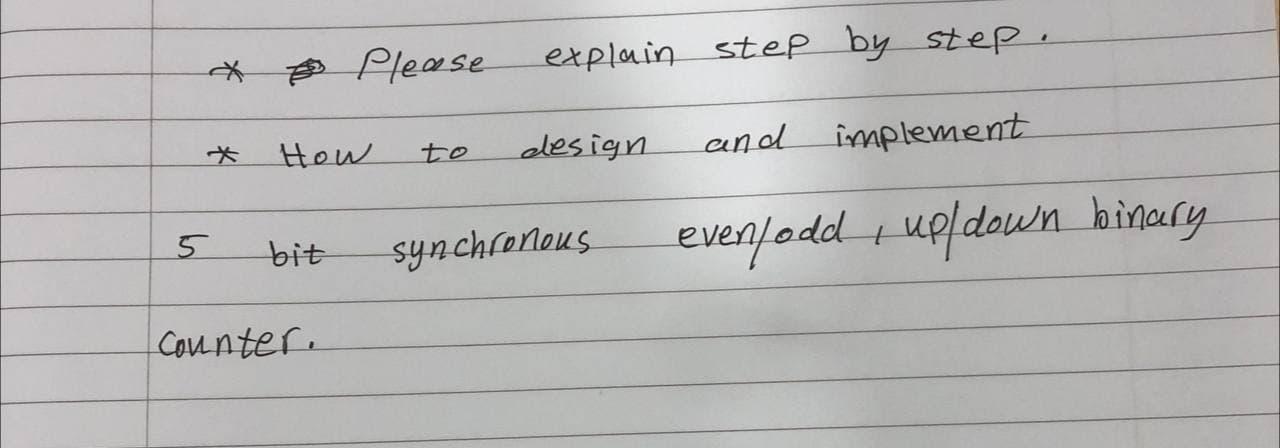 * Please explain step by step.
* How to design and implement
5 bit synchronous even/odd, up/down binary
counter.